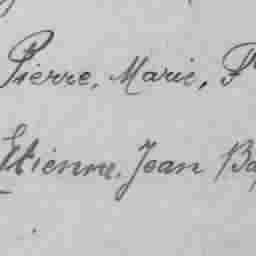 Pierre, Marie, F
Etienne, Jean Ba